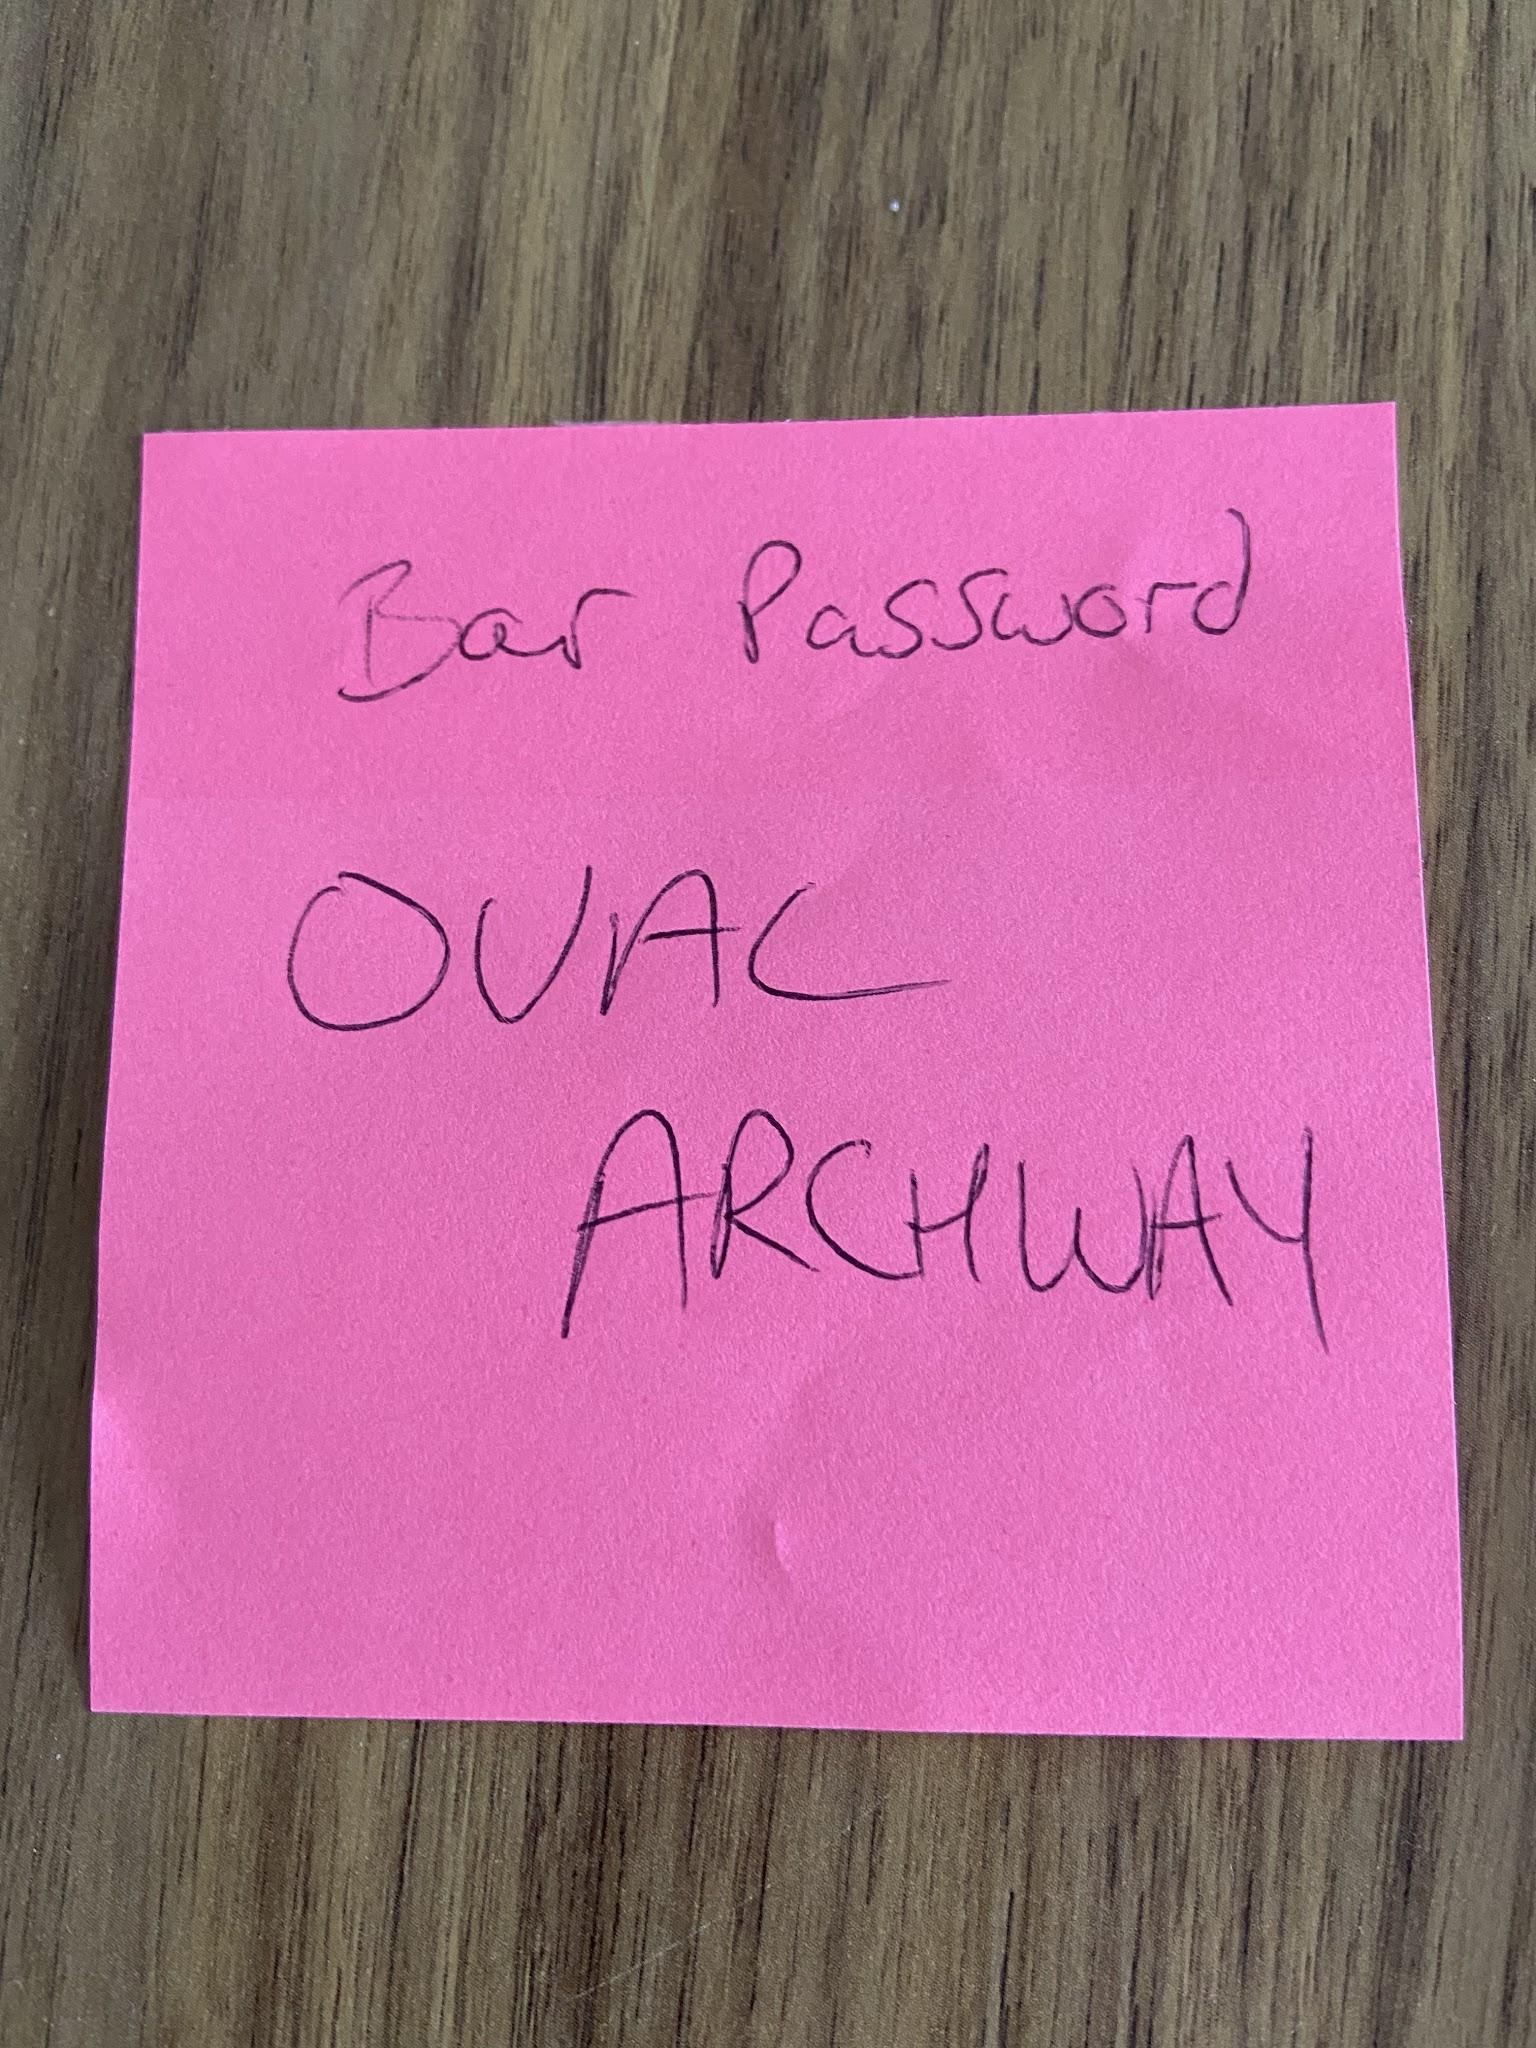 Bar Password
OVAL
ARCHWAY